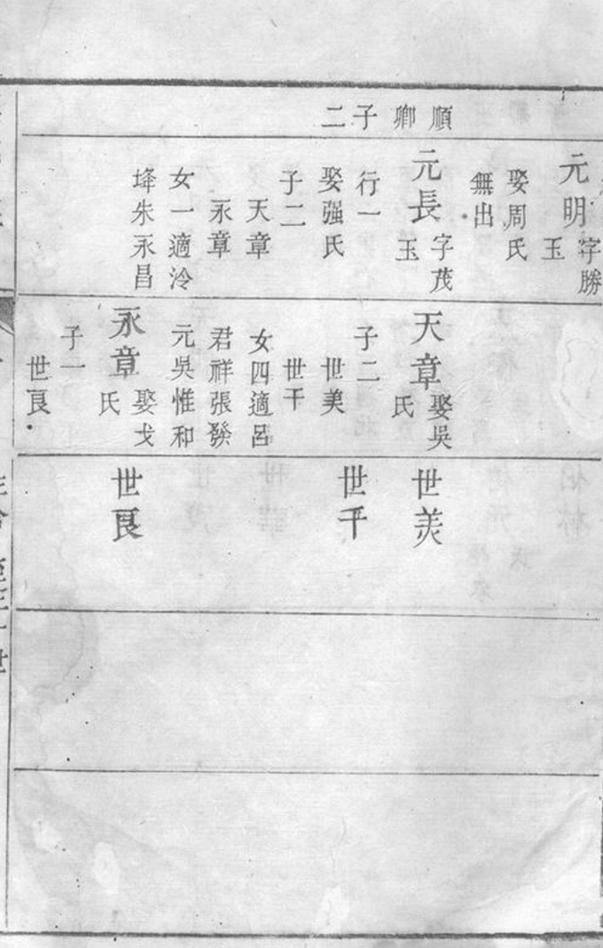 順卿子二
元明
字勝
玉
娶周氏
無出
元長
字茂
玉
行一
娶强氏
子二
天章
永章
女一適泠
埄朱永昌
天章
娶吳
氏
子二
世美
世干
女四適呂
君祥張發
元吳惟和
永章
娶戈
氏
子一
世良
世美
世干
世良